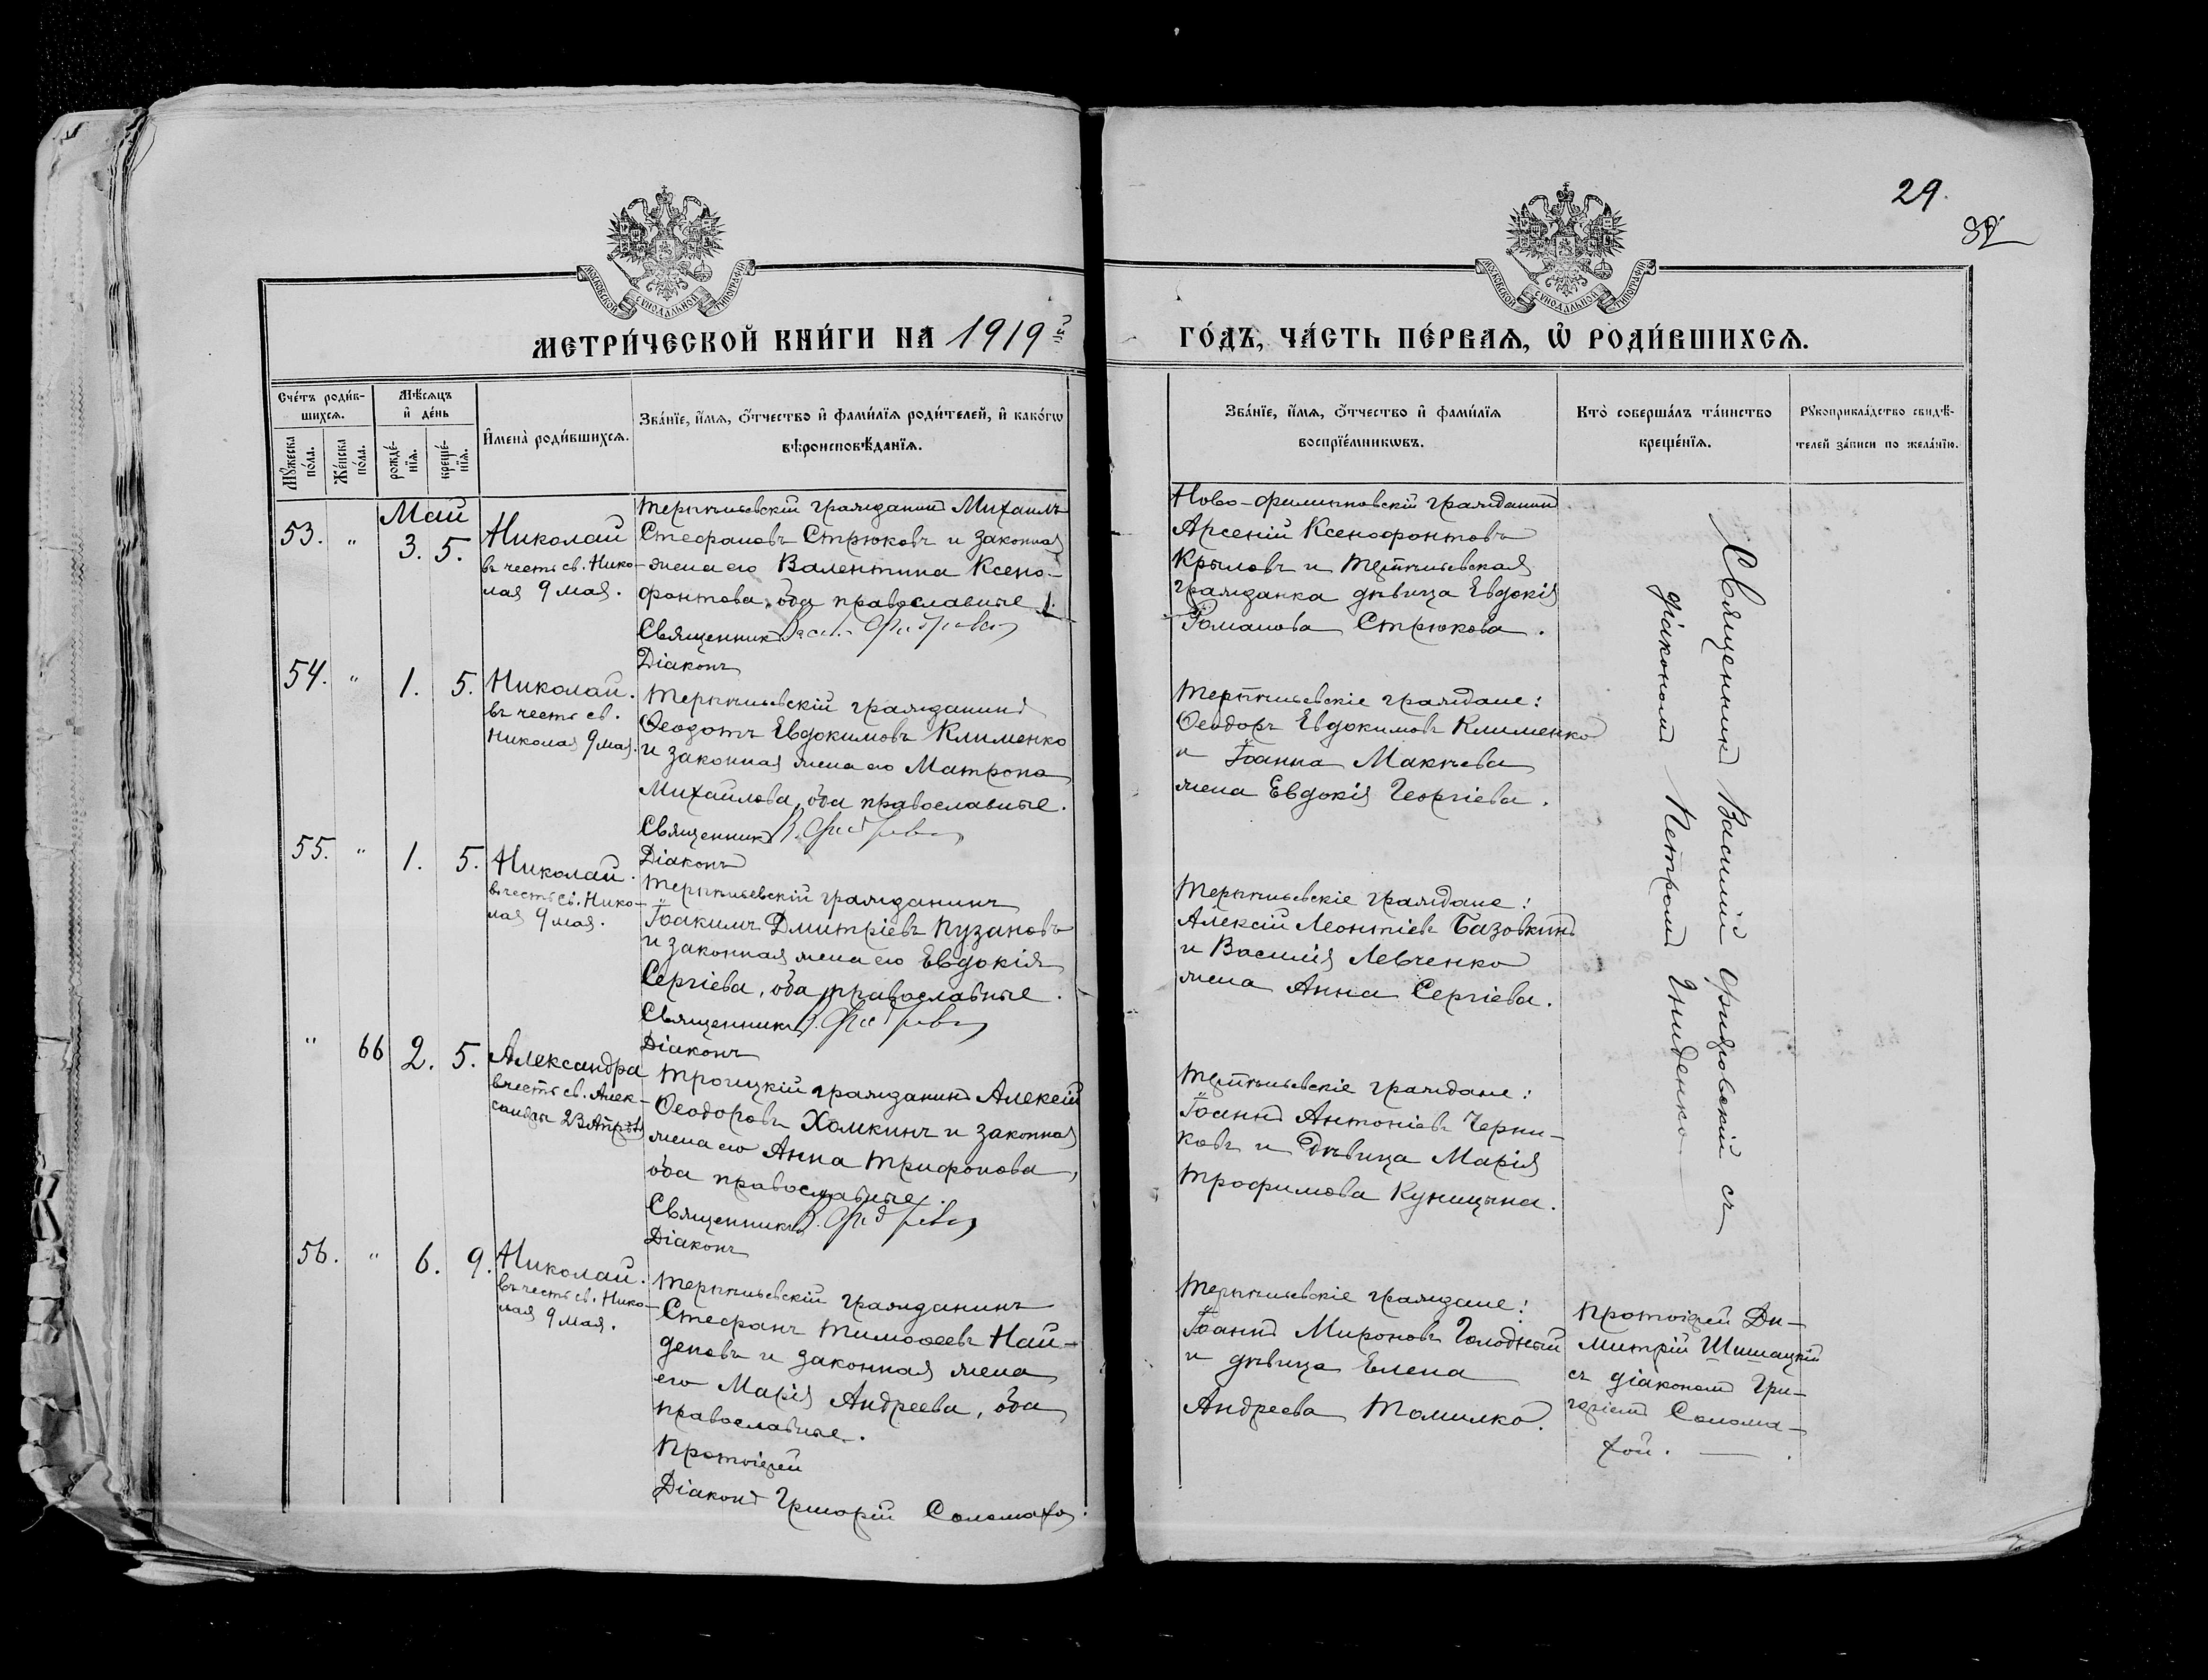 29.
32
МОСКОВСКОЙ СѴНОДАЛЬНОЙ ТИПОГРАФІИ
МОСКОВСКОЙ СѴНОДАЛЬНОЙ ТИПОГРАФІИ
МЕТРИ́ЧЕСКОЙ КНИ́ГИ НА 1919 й
ГО́ДЪ, ЧА́СТЬ ПЕ́РВАѦ, Ѽ РОДИ́ВШИХСѦ.
Сче́тъ роди́в-
шихсѧ.
Мꙋ́жеска по́ла.
Же́нска по́ла.
Мѣ́сѧцъ
и҆ де́нь
рожде́-
нїѧ.
креще́-
нїѧ.
И҆мена̀ роди́вшихсѧ.
Зва́нїе, и҆́мѧ, ѻ҆́тчество и҆ фами́лїѧ роди́телей, и҆ како́гѡ
вѣроисповѣ́данїѧ.
Зва́нїе, и҆́мѧ, ѻ҆́тчество и҆ фами́лїѧ
воспрїе́мникѡвъ.
Кто̀ соверша́лъ та́инство
креще́нїѧ.
Рꙋкоприкла́дство свидѣ́-
телей за́писи по жела́нїю.
Май
53. " 3. 5.
Николай
въ честь св. Нико-
лая 9 мая.
Терпѣньевскій гражданинъ Михаилъ
Стефановъ Стрюковъ и законная
жена его Валентина Ксено-
фонтова, оба православные.
Священникъ
Діаконъ
Ново-филипповскій гражданинъ
Арсеній Ксенофонтовъ
Крыловъ и Терпѣньевская
гражданка дѣвица Евдокія
Романова Стрюкова.
54. " 1. 5.
Николай.
въ честь св.
Николая 9 мая.
Терпѣньевскій гражданинъ
Ѳеодотъ Евдокимовъ Клименко
и законная жена его Матрона
Михайлова, оба православные.
Священникъ
Діаконъ
Терпѣньевскіе граждане:
Ѳеодоръ Евдокимовъ Клименко
и Іоанна Макѣева
жена Евдокія Георгіева.
55. " 1. 5.
Николай.
въ честь св. Нико-
лая 9 мая.
Терпѣньевскій гражданинъ
Іоакимъ Дмитріевъ Пузановъ
и законная жена его Евдокія
Сергіева, оба православные.
Священникъ
Діаконъ
Терпѣньевскіе граждане:
Алексій Леонтіевъ Базовкинъ
и Василія Левченко
жена Анна Сергіева.
" 66 2. 5.
Александра
въ честь св. Алек-
сандры 23 Апрѣля
Троицкій гражданинъ Алексій
Ѳеодоровъ Хомкинъ и законная
жена его Анна Трифонова,
оба православные.
Священникъ
Діаконъ
Терпѣньевскіе граждане:
Іоаннъ Антоніевъ Черни-
ковъ и дѣвица Марія
Трофимова Куницына.
Священникъ Василій Фидровскій съ
діакономъ Петромъ Гниденко
56. " 6. 9.
Николай.
въ честь св. Нико-
лая 9 мая.
Терпѣньевскій гражданинъ
Стефанъ Тимоѳеевъ Най-
деновъ и законная жена
его Марія Андреева, оба
православные.
Протоіерей
Діаконъ Григорій Соломаха
Терпѣньевскіе граждане:
Іоаннъ Мироновъ Голодный
и дѣвица Елена
Андреева Томилко.
Протоіерей Ди-
митрій Шишацкій
съ діакономъ Гри-
горіемъ Солома-
хой.